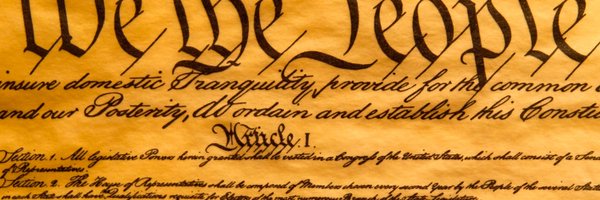 We the People
insure domestic Tranquility, provide for the common
and our Posterity, do ordain and establish this Consti
Article. I.
Section. 1. All legislative Powers herein granted shall be vested in a Congress of the United States, which shall consist of a Sena
of Representatives.
Section. 2. The House of Representatives shall be composed of Members chosen every second Year by the People of the several States
in each State shall have Qualifications requisite for Electors of the most numerous Branch of the State Legislature.